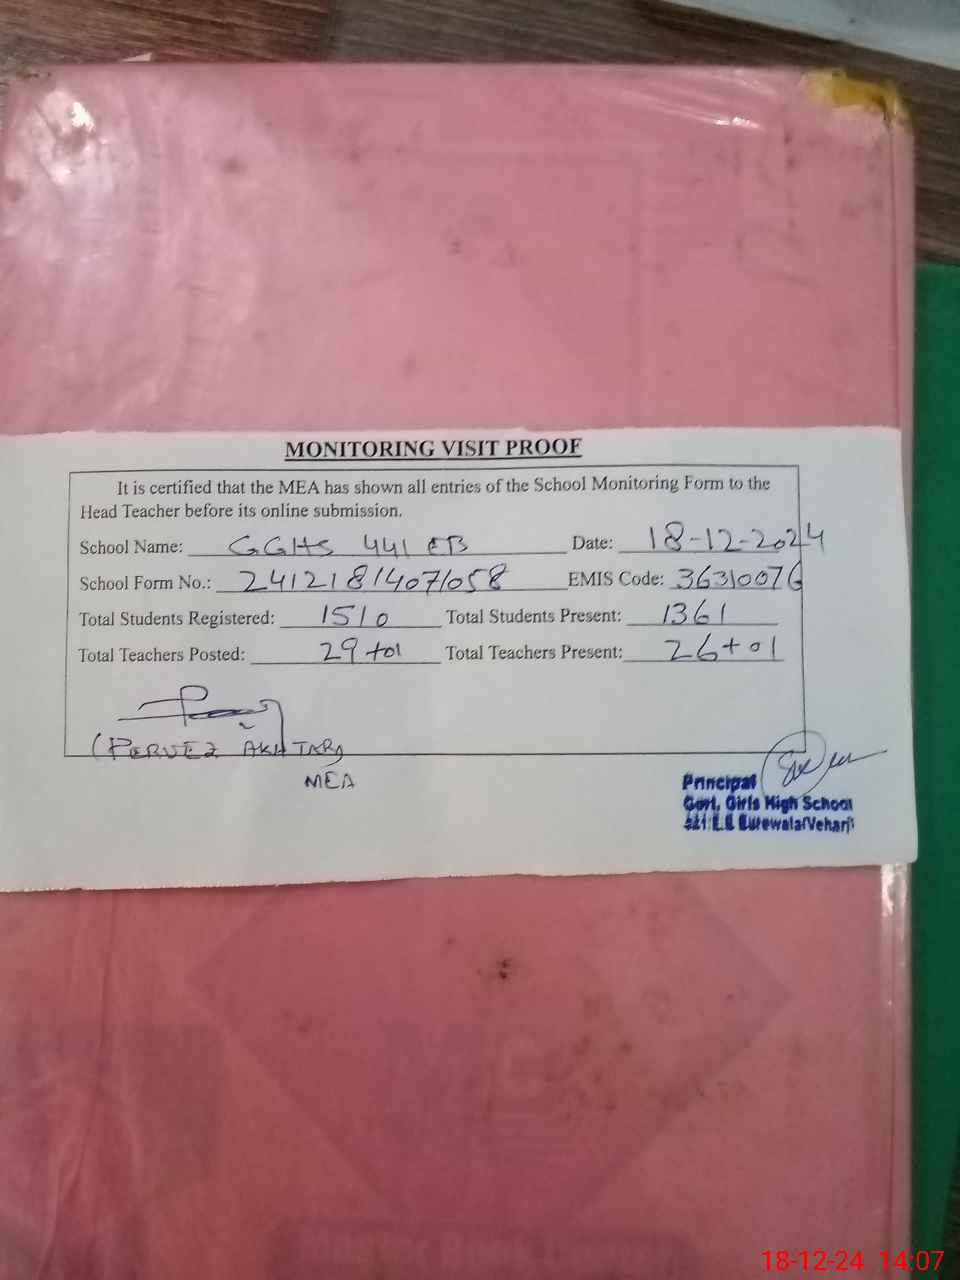 MONITORING VISIT PROOF
It is certified that the MEA has shown all entries of the School Monitoring Form to the
Head Teacher before its online submission.
School Name: GGHS 441 EB Date: 18-12-2024
School Form No.: 2412181407058 EMIS Code: 36310076
Total Students Registered: 1510 Total Students Present: 1361
Total Teachers Posted: 29+01 Total Teachers Present: 26+01
(PERVEZ AKHTAR)
MEA
Principal
Govt. Girls High School
E.B Burewala(Vehari)
18-12-24 14:07